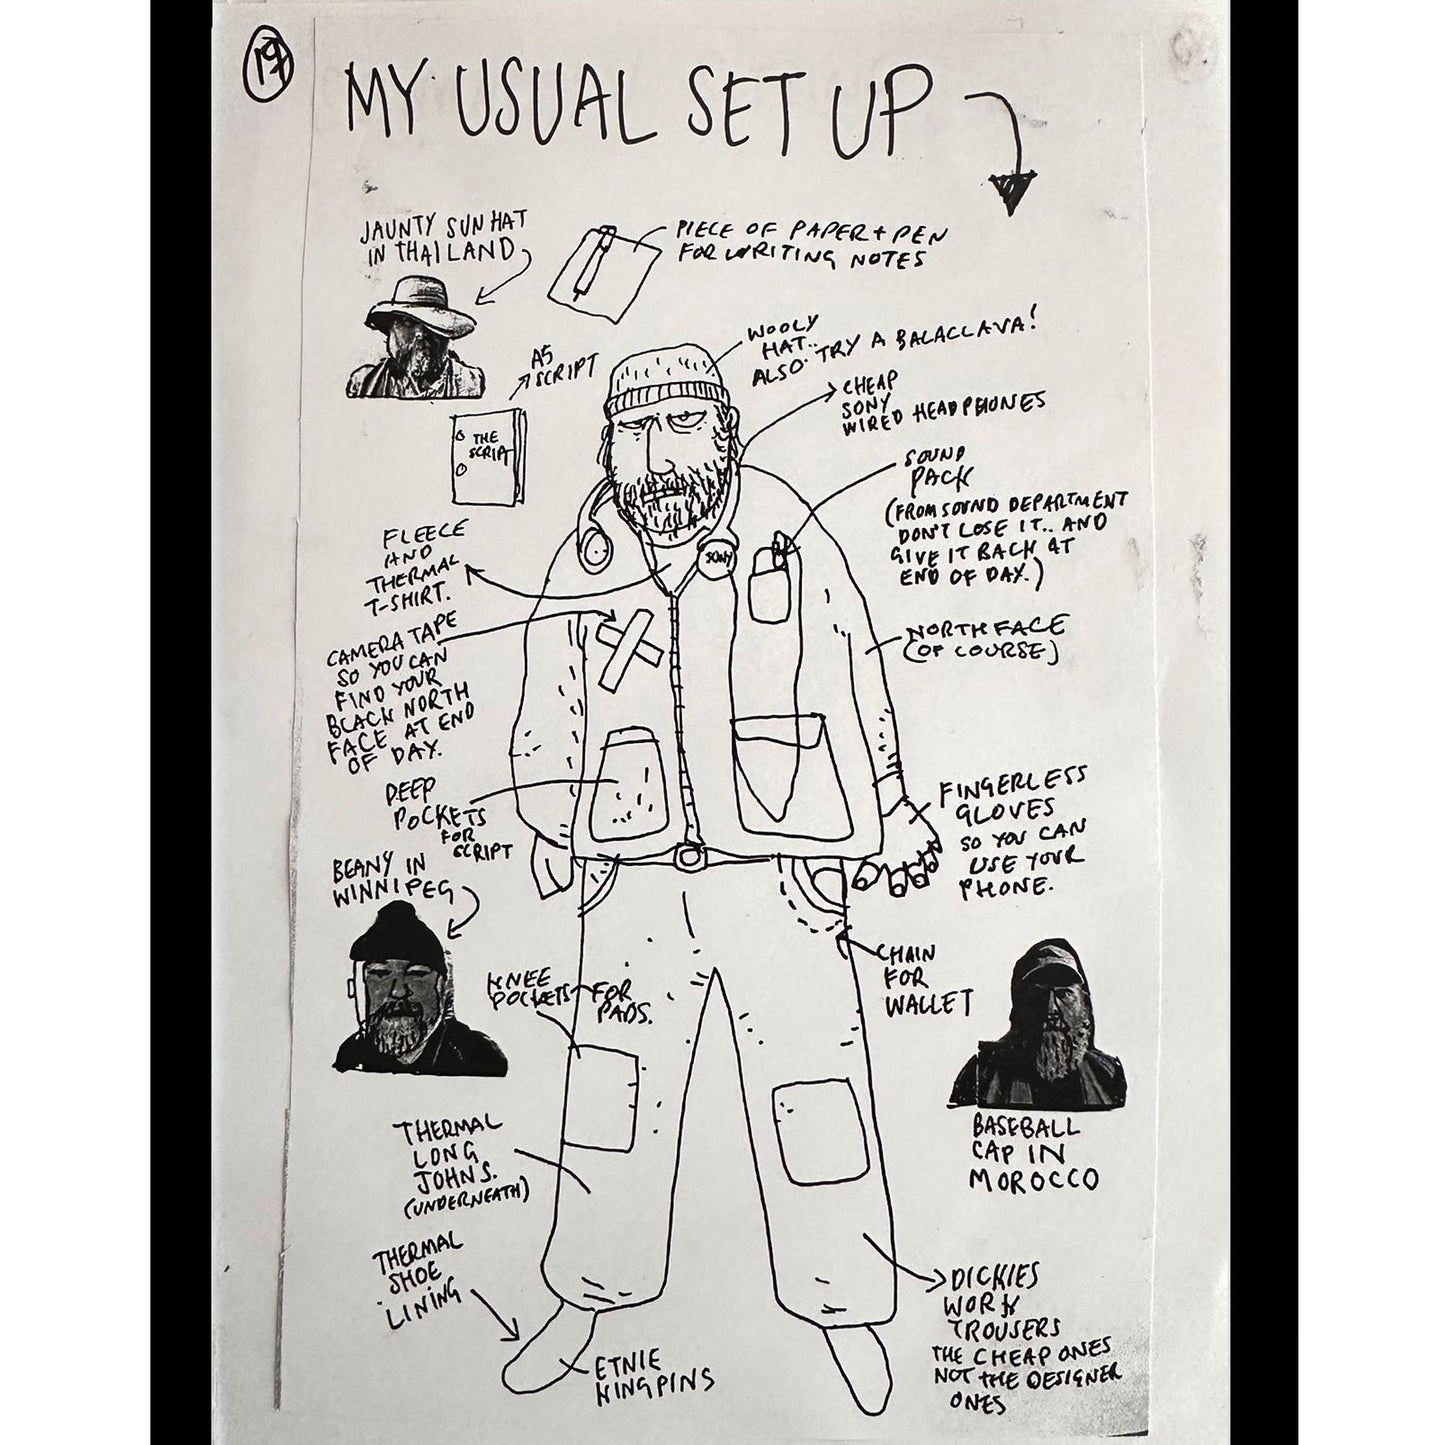 19
MY USUAL SET UP
JAUNTY SUN HAT
IN THAILAND
PIECE OF PAPER + PEN
FOR WRITING NOTES
WOOLY
HAT..
ALSO TRY A BALACLAVA!
A5
SCRIPT
THE
SCRIPT
CHEAP
SONY
WIRED HEADPHONES
SOUND
PACK
(FROM SOUND DEPARTMENT
DON'T LOSE IT.. AND
GIVE IT BACK AT
END OF DAY.)
FLEECE
AND
THERMAL
T-SHIRT.
SONY
CAMERA TAPE
SO YOU CAN
FIND YOUR
BLACK NORTH
FACE AT END
OF DAY.
NORTH FACE
(OF COURSE)
DEEP
POCKETS
FOR
SCRIPT
FINGERLESS
GLOVES
SO YOU CAN
USE YOUR
PHONE.
BEANY IN
WINNIPEG
CHAIN
FOR
WALLET
KNEE
POCKETS FOR
PADS.
THERMAL
LONG
JOHNS.
(UNDERNEATH)
BASEBALL
CAP IN
MOROCCO
THERMAL
SHOE
LINING
ETNIE
KINGPINS
DICKIES
WORK
TROUSERS
THE CHEAP ONES
NOT THE DESIGNER
ONES